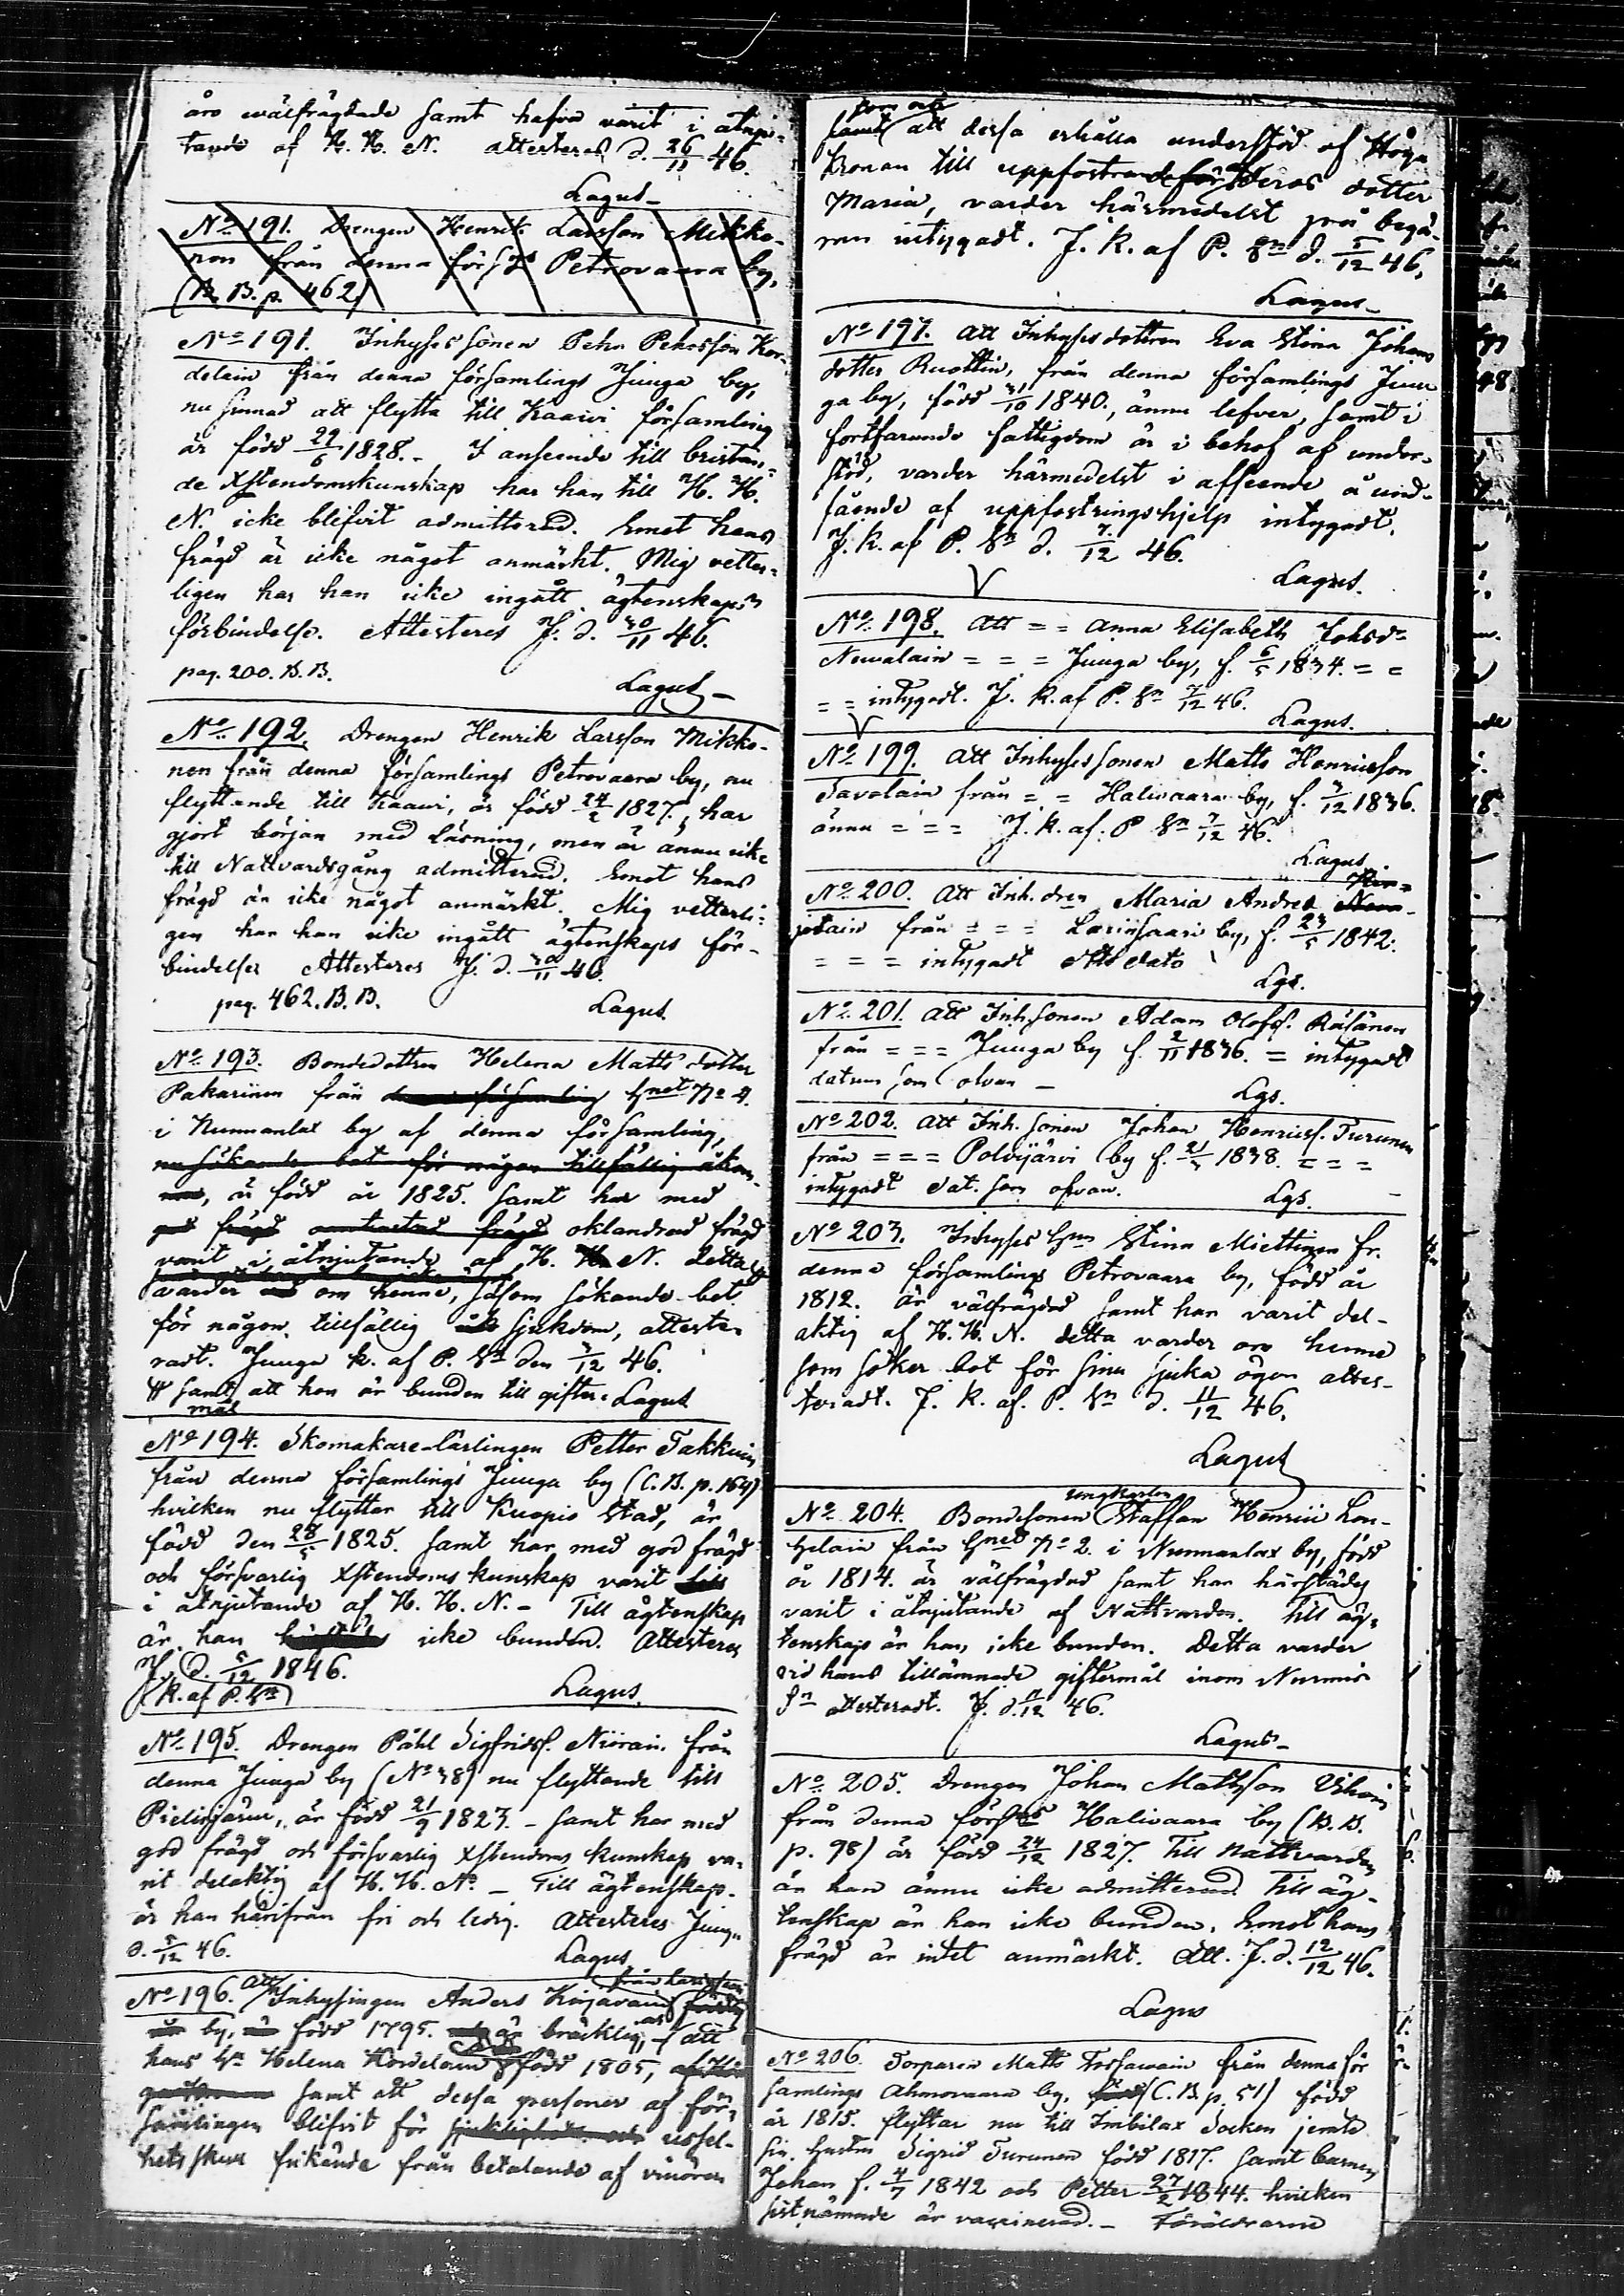 äro wälfrägdade samt hafva varit i åtnju-
tande af H. H. N. attesteras d. 26/11 46.
Lagus
No 191. Drengen Henrik Larsson Mikko-
nen från denna förs:gs Petrovaara by,
(B. B. p. 462)
No 191. Inhyses sonen Pehr Pehrsson Kor-
delain från denna församlings Juuga by,
nu sinnad att flytta till Kaavi församling
är född 29/6 1828. - I anseende till bristan-
de Xstendomskunskap har han till H. H.
N. icke blifvit admitterad. Emot hans
frägd är icke något anmärkt. Mig vetter-
ligen har han icke ingått ägtenskaps
förbindelse. Attesteras J. d. 30/11 46.
pag. 200. B. B.
Lagus
No 192. Drengen Henrik Larsson Mikko-
nen från denna församlings Petrovaara by, nu
flyttande till Kaavi, är född 24/2 1827, har
gjort början med läsning, men är ännu icke
till Nattvardsgång admitterad. Emot hans
frägd är icke något anmärkt. Mig vetterli-
gen har han icke ingått ägtenskaps för-
bindelser Attesteras J. d. 30/11 46.
pag. 462. B. B.
Lagus
No 193. Bondedottren Helena Matts dotter
Pakarinen från denna församling Hnet No 4.
i Nunnanlax by af denna församling,
nu sökande bot för någon tillfällig åkom-
ma, är född år 1825. samt har med
god frägd frägd oklandrad frägd
varit i åtnjutande af H. H. N. Detta
varder om henne, såsom sökande bot
för någon tillfällig sjukdom, atteste-
radt. Juuga k. af P. Sn den 3/12 46.
# samt att hon är bunden till gifter- Lagus
mål
No 194. Skomakare-lärlingen Petter Takkuin
från denna församlings Juuga by (C. B. p. 164)
hvilken nu flyttar till Kuopio Stad, är
född den 28/5 1825. samt har med god frägd
och försvarlig Xstendoms kunskap varit
i åtnjutande af H. H. N. - Till ägtenskap
är han icke bunden. Attesteras
J. d. 5/12 1846.
(K. af P. Sn)
Lagus.
No 195. Drengen Påhl Sigfridss. Niirain från
denna Juuga by (No 38) nu flyttande till
Pielisjärvi, är född 21/9 1823. - samt har med
god frägd och försvarlig Xstendoms kunskap va-
rit delaktig af H. H. N. - Till ägtenskap
är han härifrån fri och ledig. Attesteras Juuga
d. 5/12 46.
Lagus
från Larinsaari
No 196. Att Inhysingen Anders Kinjavain
by, född 1795. är bräcklig, att
hans h:u Helena Kordelain född 1805,
samt att dessa personer af för-
samlingen blifvit för sjuklighet och ussel-
hets skull frikände från betalande af
som och
samt att dessa erhålla understöd af Höga
Kronan till uppfostrande för deras dotter
Maria, varder härmedelst på begä-
ran intygadt. J. K. af P. Sn d. 5/12 46.
Lagus
No 197. Att Inhyses dottren Eva Stina Johans
dotter Ruottin, från denna församlings Juu-
ga by, född 31/10 1840., ännu lefver, samt i
fortfarande fattigdom är i behof af under-
stöd, varder härmedelst i afseende å und-
fående af uppfostringshjelp intygadt.
J. K. af P. Sn d. 7/12 46.
V
Lagus.
No 198. Att = = Anna Elisabeth Johsdr
Nevalain = = = Juuga by, f. 6/5 1834. = =
= = intygadt. J. K. af P. Sn 7/12 46.
V
Lagus.
No 199. Att Inhyses sonen Matts Henricsson
Savolain från = = Halivaara by, f. 3/12 1836.
ännu = = = J. K. af. P Sn 7/12 46.
Lagus.
No 200. Att Inh. dren Maria Andrea
från = = = Lariinsaari by, f. 23/5 1842.
= = = intygadt Att dato
Lgs.
No 201. Att Inh. sonen Adam Olofs. Räsänen
från = = = Juuga by f. 2/11 1836. = intygadt
datum som ofvan -
Lgs.
No 202. Att Inh. sonen Johan Henricss. Turunen
från = = = Polvijärvi by f. 21/5 1838. = = =
intygadt dat. som ofvan.
Lgs.
No 203. Inhyses h:un Stina Miettinen fr.
denna församlings Petrovaara by, född år
1812. är välfrägdad samt har varit del-
aktig af H. H. N. Detta varder om henne
som söker bot för sina sjuka ögon attes-
teradt. J. K. af. P. Sn d. 11/12 46.
Lagus
No 204. Bondesonen ungkarlen Staffan Henricss
från Hnet No 2. i Nunnanlax by, född
år 1814. är välfrägdad samt har härstädes
varit i åtnjutande af Nattvarden. Till äg-
tenskap är han icke bunden. Detta varder
vid hans tillämnade giftermål inom Nurmis
Sn attesteradt. J. d. 12/12 46.
Lagus
No 205. Drengen Johan Mathson
från denna förs:gs Halivaara by (B. B.
p. 98) är född 24/12 1827. Till nattvarden
är han ännu icke admitterad. Till äg-
tenskap är han icke bunden. Emot hans
frägd är intet anmärkt. Att. J. d. 12/12 46.
Lagus
No 206. Torparen Matts från denna för
samlings Ahmovaara by, (C. B. p. 51) född
år 1815. flyttar nu till Imbilax Socken jemte
sin hustru Sigrid Turunen född 1817. samt barnen
Johan f. 4/7 1842 och Petter 27/2 1844. hvilken
sistnämnde är vaccinerad. - Föräldrarne